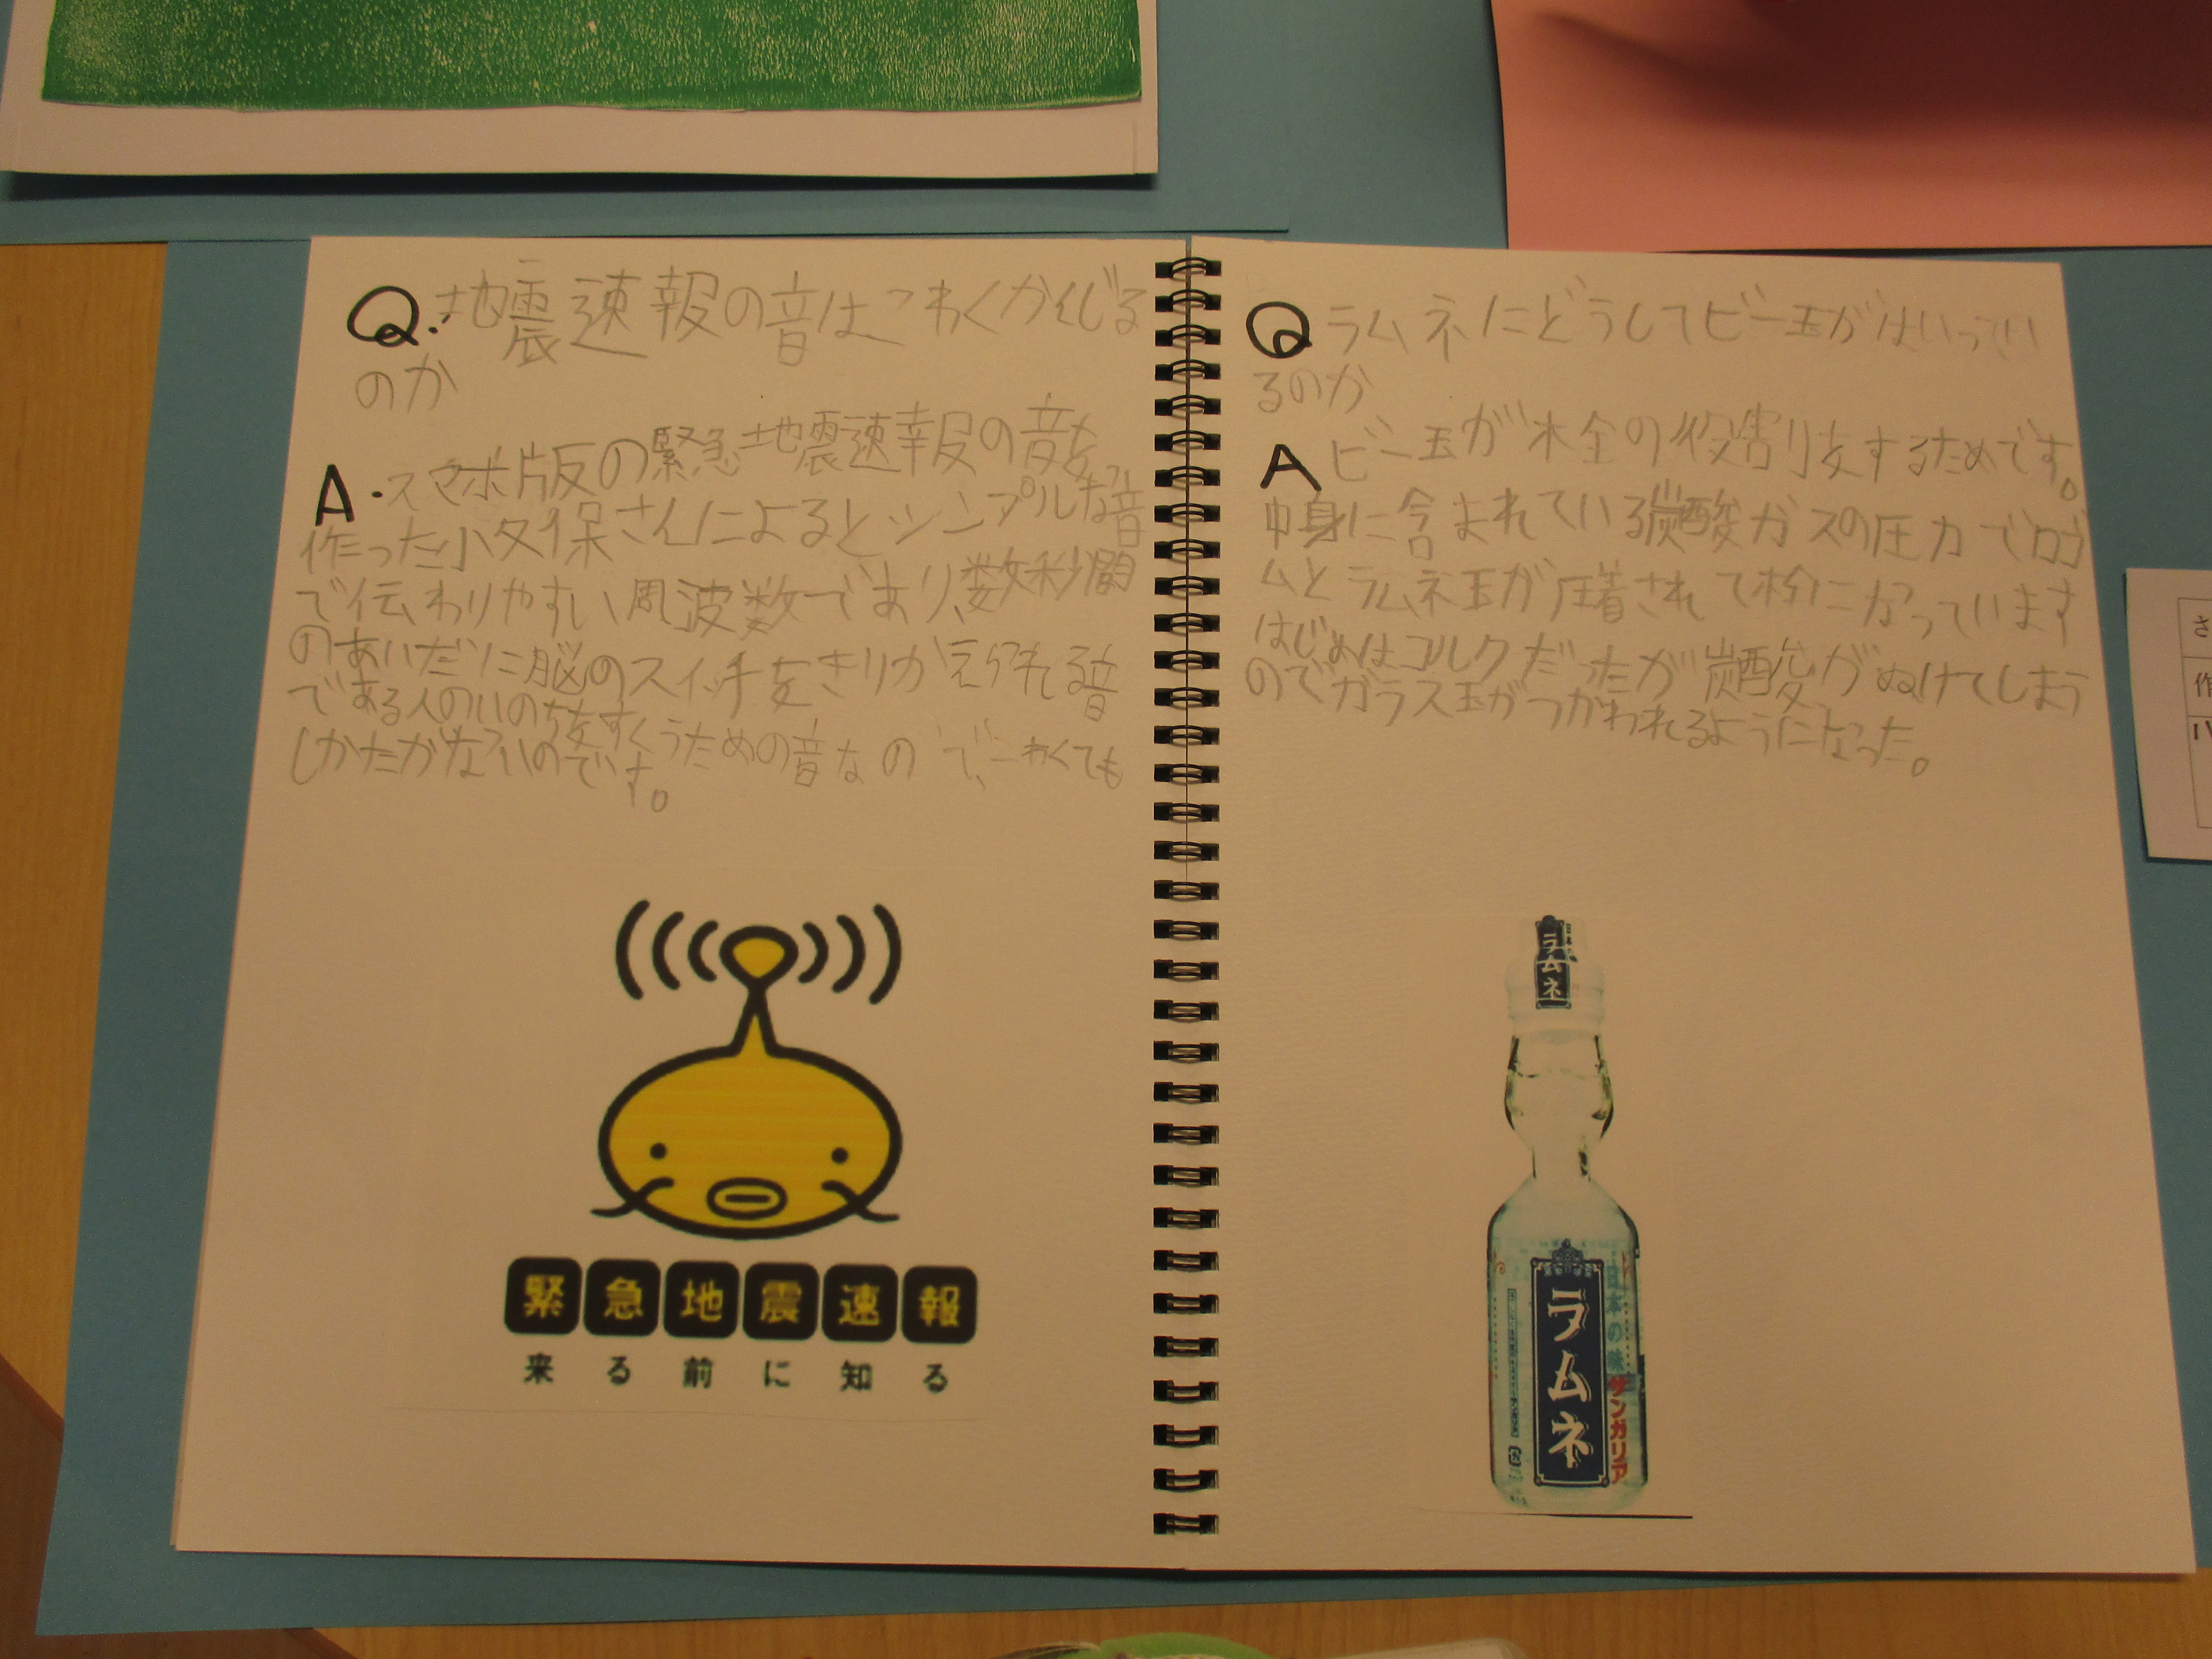 Q.地震速報の音はこわくかんじる
のか
A.スマホ版の緊急地震速報の音を
作った小久保さんによるとシンプルな音
で伝わりやすい周波数であり、数秒間
のあいだに脳のスイッチをきりかえられる音
である人のいのちをすくうための音なので、こわくても
しかたがないのです。
緊急地震速報
来る前に知る
Q ラムネにどうしてビー玉がはいってい
るのか
A ビー玉が木全の役割りをするためです。
中身に含まれている炭酸ガスの圧力でロゴ
ムとラムネ玉が圧着されて栓になっています
はじめはコルクだったが炭酸がぬけてしまう
のでガラス玉がつかわれるようになった。
ラムネ
ラムネ
日本の味
サンガリア
さ
作